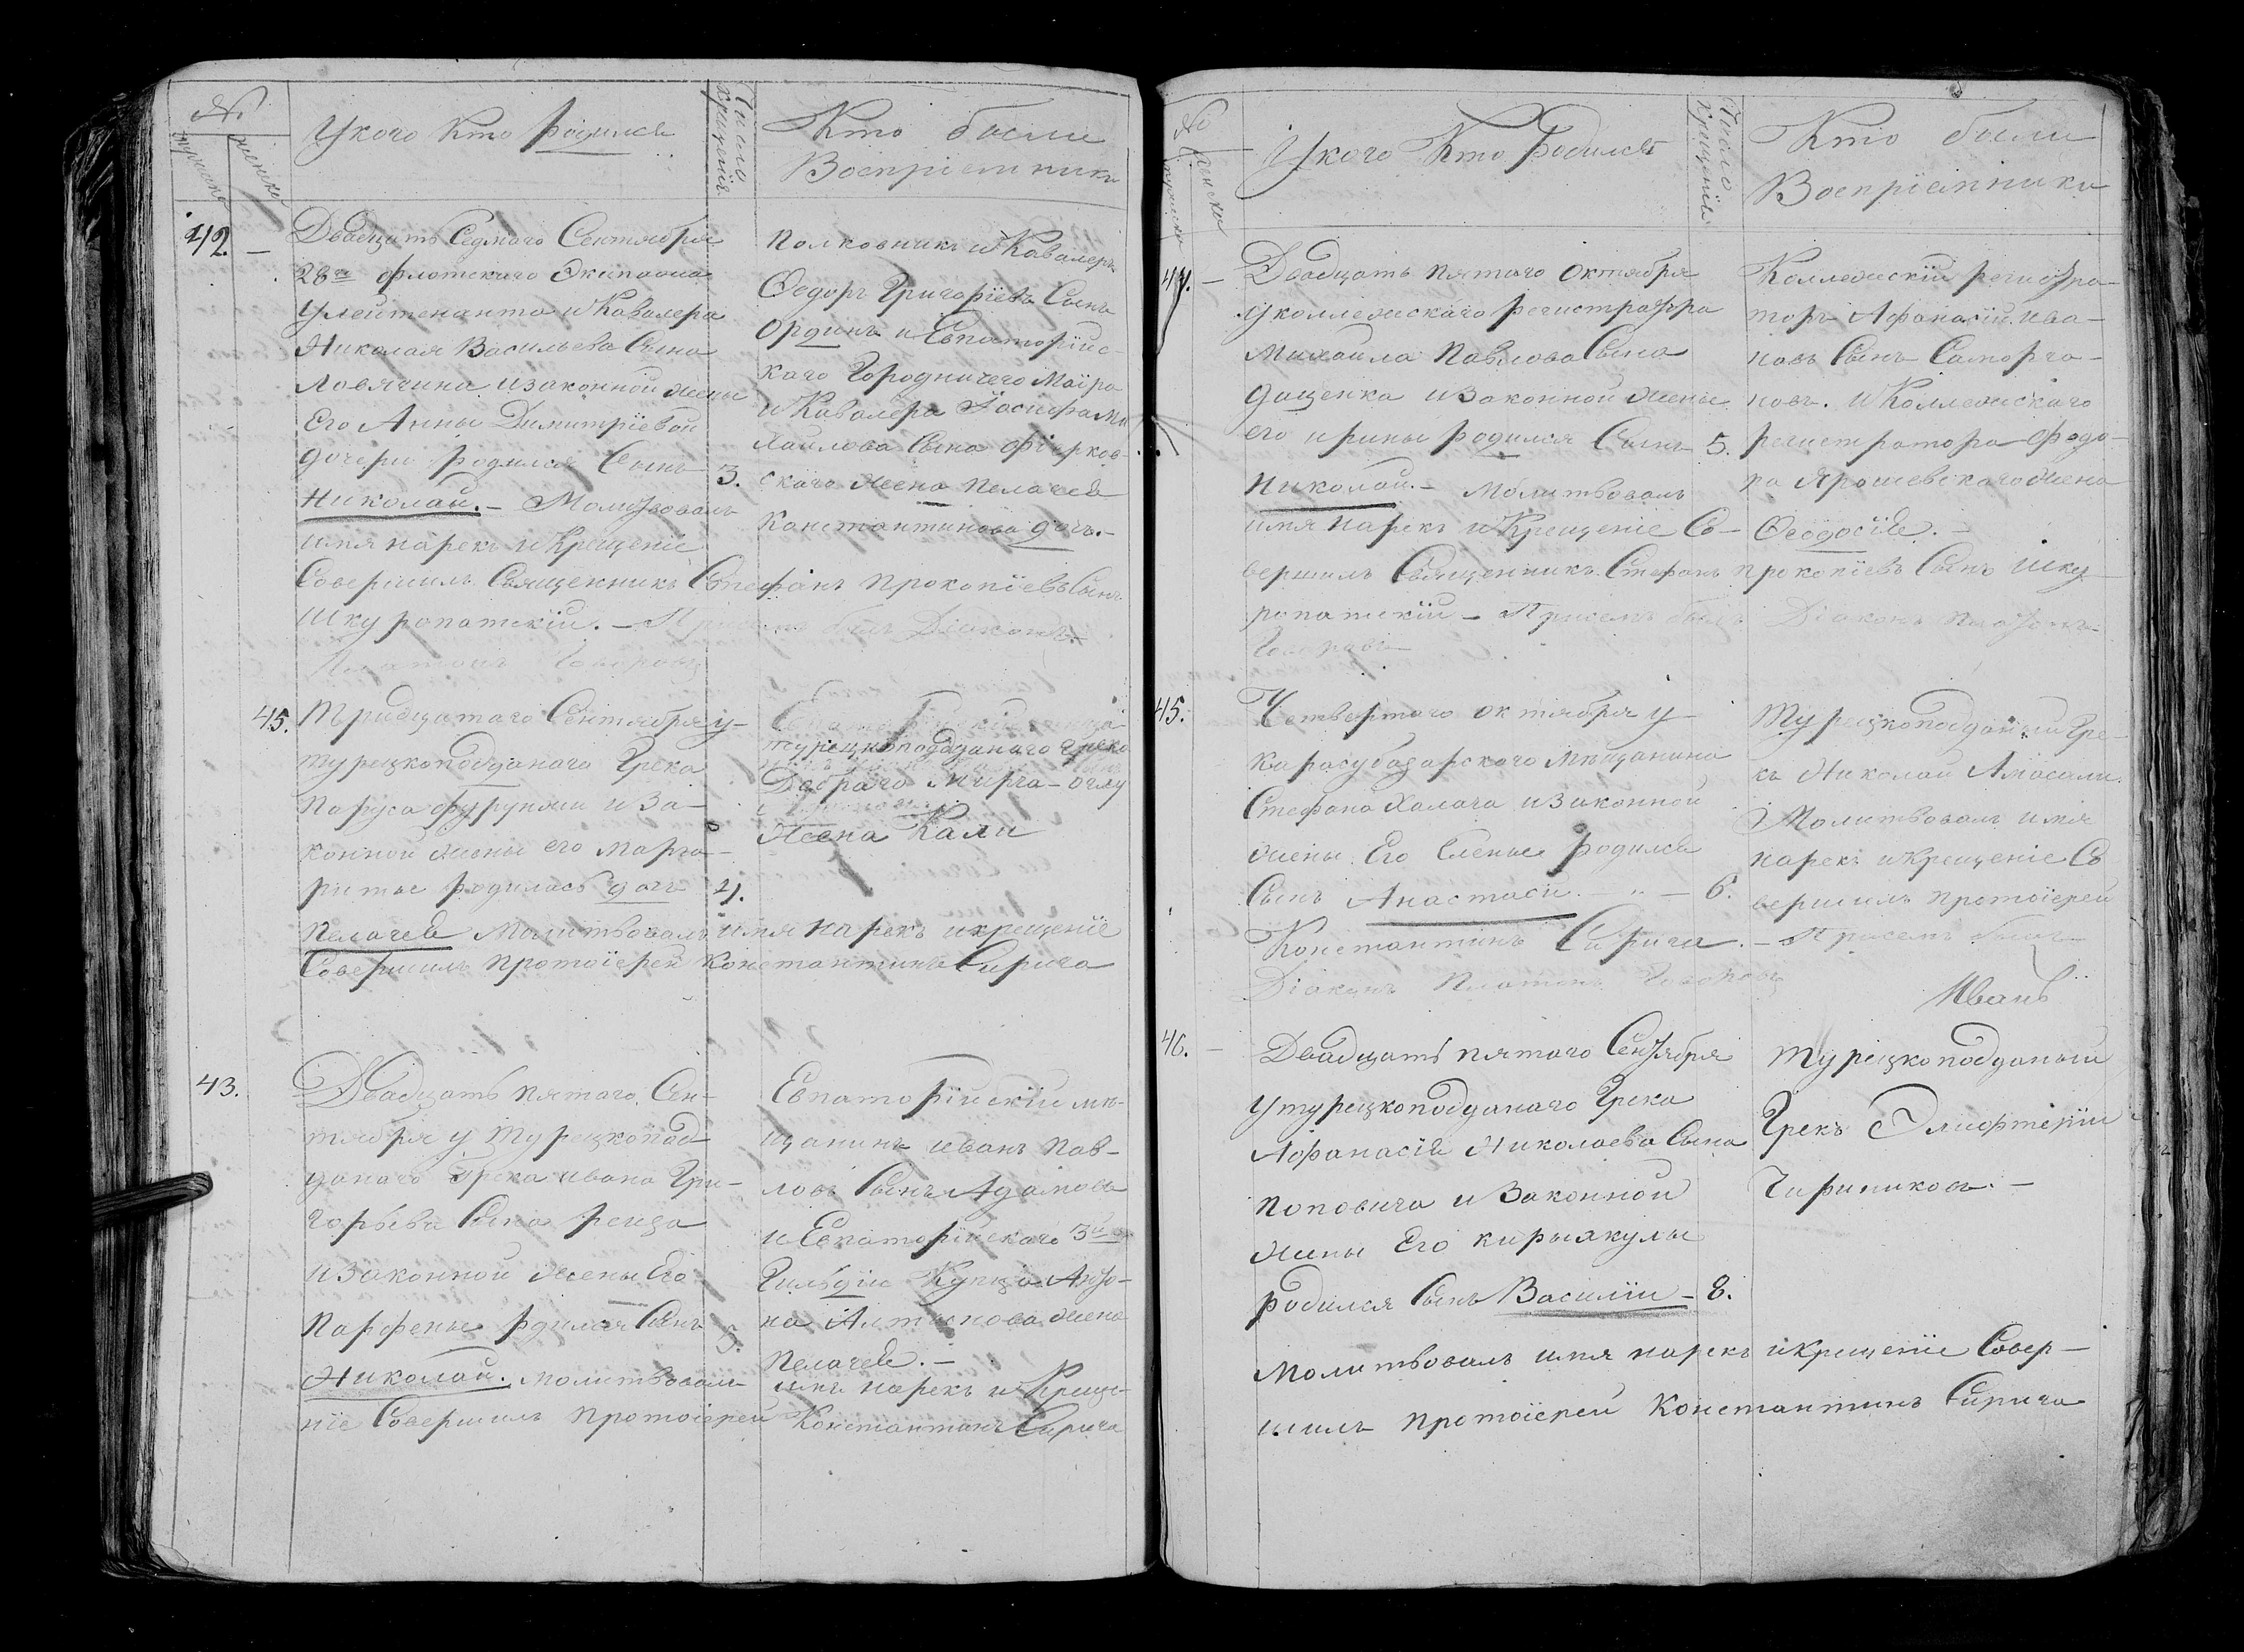 №
мужеска
женска
У кого Кто родился
Число
крещенія.
Кто были
Воспріемники
42. –
Двадцать Седмаго Сентября
28го флотскаго Экипажа
У лейтенанта и Кавалера
Николая Васильева Сына
Ловягина и законной жены
Его Анны Димитріевой
дочери родился Сынъ
Николай. – Молитвовалъ
имя нарекъ и Крещеніе
Совершилъ Священникъ Стефанъ Прокопіевъ Сынъ
Шкуропатскій. – При семъ былъ Діаконъ
Платонъ
3.
Полковникъ и Кавалеръ
Ѳедоръ Григоріевъ Сынъ
Ординъ и Евпаторійс-
каго Городничего Маіра
и Кавалера Іосифа Ми
хайлова Сына
скаго жена Пелагея
Константинова дочь. –
45.
Тридцатаго Сентября у
турецкоподданаго Грека
и За-
конной жены его Марга-
риты родилась дочь
Пелагея Молитвовалъ имя нарекъ и крещеніе
Совершилъ Протоіерей Константинъ Сирига
4.
турецкоподданаго Грека
Мирча-оглу
Жена Кали
43.
Двадцать пятаго Сен-
тября у Турецкопод-
данаго Грека ивана Гри-
горьева Сына
и законной жены Его
Парфены рдился Сынъ
Николай. молитвовалъ
ніе Совершилъ Протоіерей
5.
Евпаторійскій мѣ-
щанинъ иванъ Пав-
ловъ Сынъ Адамовъ
и Евпаторійскаго 3й
Гильдіи Купца Анто-
на жена
Пелагея. –
имя нарекъ и Креще-
Константинъ Сирига
№
мужеска
женска
У кого Кто Родился
Число
крещенія
Кто были
Воспріемники
44. –
Двадцать пятаго Октября
У коллежскаго регистратора
Михаила Павлова Сына
дащенка и Законной жены
его ирины родился Сынъ
Николай. – Молитвовалъ
имя нарекъ и Крещеніе Со-
вершилъ Священникъ Стефанъ Прокопіевъ Сынъ Шку
ропатскій – При семъ былъ Діаконъ Платонъ
5.
Коллежскій регистра-
торъ Афанасій ива-
новъ Сынъ
новъ. и Коллежскаго
регистратора Федо-
ра Ярошевскаго жена
Ѳеодосія. –
45.
Четвертаго октября у
Карасубазарскаго Мѣщанина
Стефана Халача и законной
жены Его Елены родился
Сынъ Анастасій. – " –
Константинъ Сирига. – При семъ былъ
Діаконъ Платонъ
6.
Турецкоподданый Гре-
къ Николай
Молитвовалъ имя
нарекъ и Крещеніе Со
вершилъ Протоіерей
Иванъ
46. –
Двадцать пятаго Сентября
У турецкоподданаго Грека
Афанасія Николаева Сына
Поповича и Законной
жены Его кирьякулы
родился Сынъ Василій – 8.
Турецкоподданый
Грекъ Элифтерій
Молитвовалъ имя нарекъ и Крещеніе Совер-
шилъ Протоіерей Константинъ Сирига